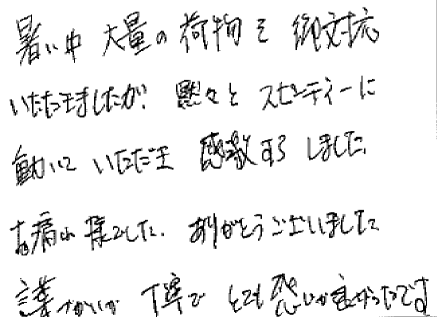 暑い中 大量の荷物を 御対応
いただきましたが、黙々と スピーディーに
動いて いただき 感激すら しました
お疲れ様でした、ありがとうございました
言葉づかいが 丁寧で とても感じが良かったです